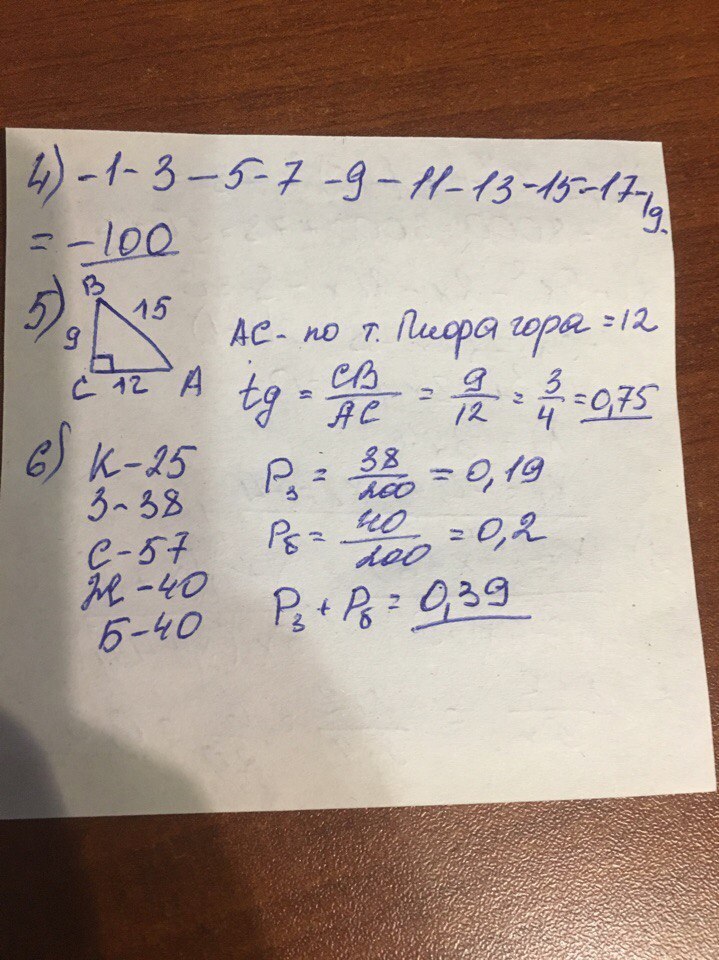 4) -1-3-5-7-9-11-13-15-17-19.
= -100
5) B 15 9 C 12 A
AC- по т. Пифагора = 12
tg = CB/AC = 9/12 = 3/4 = 0,75
6) К-25
З-38
С-57
Ж-40
Б-40
Pз = 38/200 = 0,19
Pб = 40/200 = 0,2
Pз + Pб = 0,39